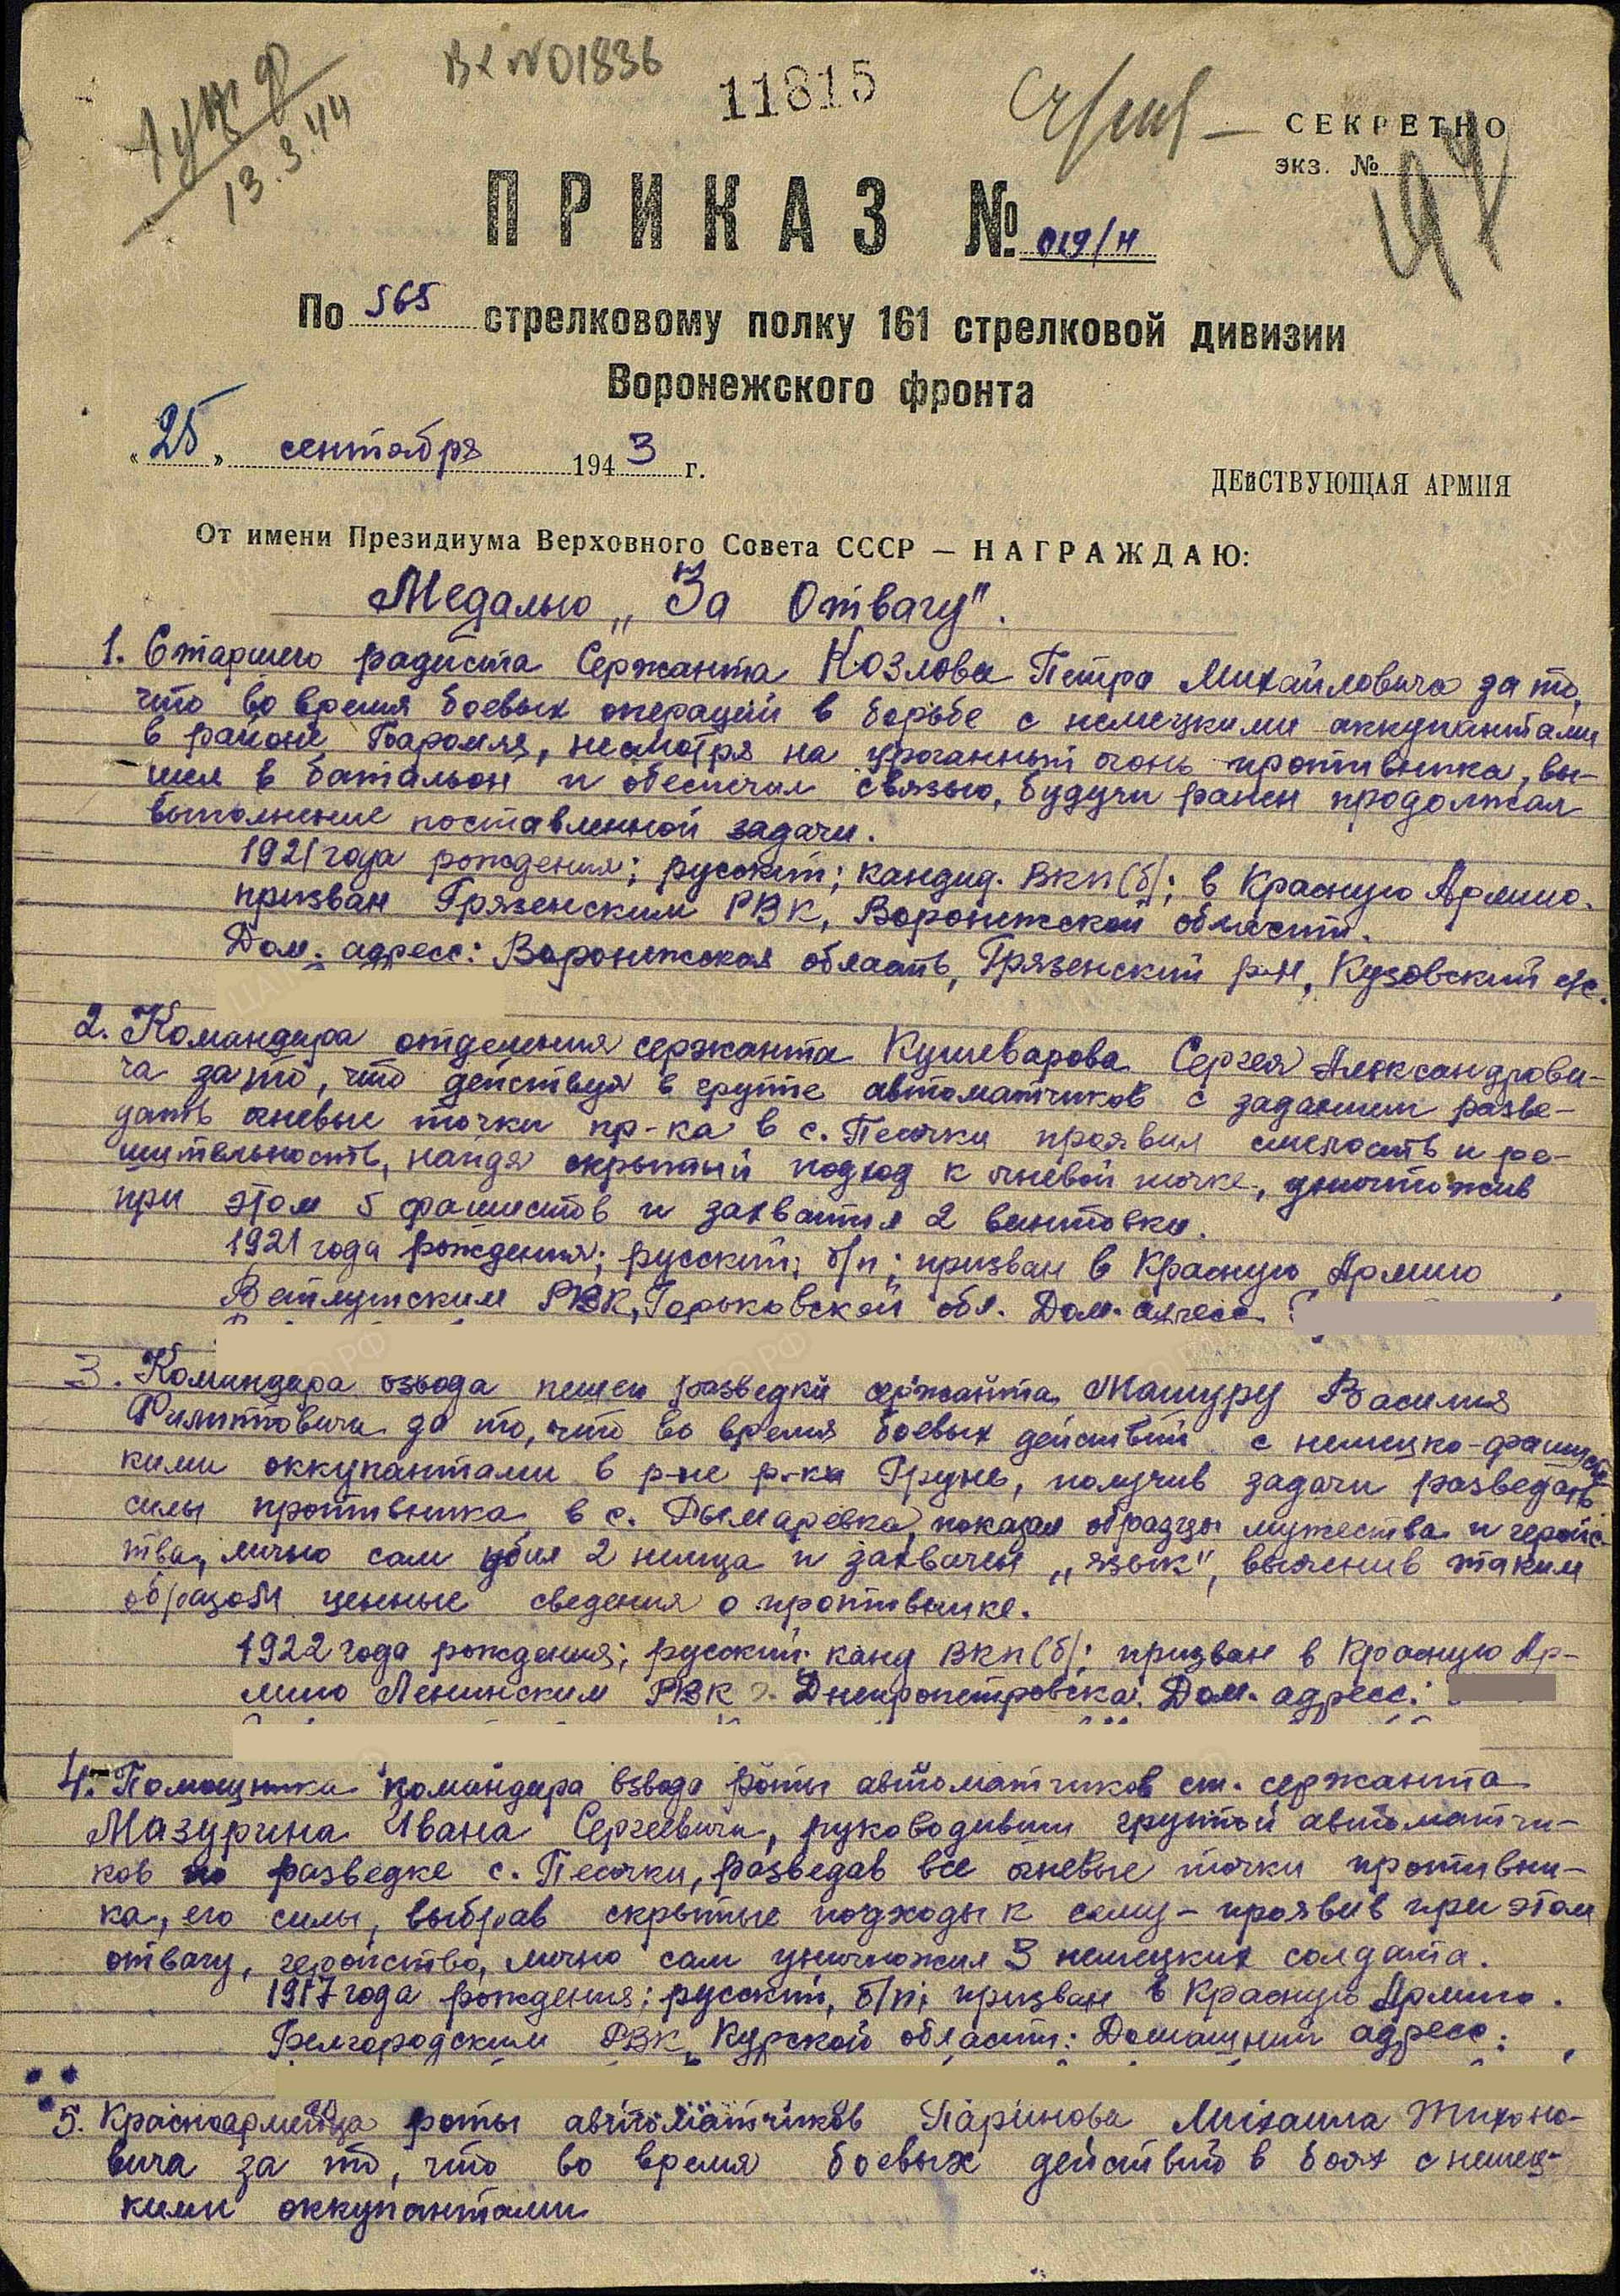 Вх №01836
11815
13.3.44
СЕКРЕТНО
экз. №
ПРИКАЗ № 019/н
По 565 стрелковому полку 161 стрелковой дивизии
Воронежского фронта
„25" сентября 1943 г.
ДЕЙСТВУЮЩАЯ АРМИЯ
От имени Президиума Верховного Совета СССР — НАГРАЖДАЮ:
Медалью „За Отвагу".
1. Старшего радиста Сержанта Козлова Петра Михайловича за то,
что во время боевых операций в борьбе с немецкими аккупантами
в районе Баромля, несмотря на ураганный огонь противника, вы-
шел в батальон и обеспечил связью, будучи ранен продолжал
выполнение поставленной задачи.
1921 года рождения; русский; кандид. ВКП(б); в Красную Армию
призван Грязенским РВК, Воронежской области.
Дом. адресс: Воронежская область, Грязенский р-н, Кузовский с/с.
2. Командира отделения сержанта Кушеварова Сергея Александрови-
ча за то, что действуя в группе автоматчиков с заданием разве-
дать огневые точки пр-ка в с. Песочки проявил смелость и ре-
шительность, найдя скрытый подход к огневой точке, уничтожив
при этом 5 фашистов и захватил 2 винтовки.
1921 года рождения; русский; б/п; призван в Красную Армию
Ветлужским РВК, Горьковской обл. Дом. адресс
3. Командира взвода пешей разведки сержанта Мащуру Василия
Филипповича за то, что во время боевых действий с немецко-фашистс
кими оккупантами в р-не р-ки Грунь, получив задачи разведать
силы противника в с. Дымаревка, показал образцы мужества и геройс-
тва, лично сам убил 2 немца и захвачен „язык", выяснив таким
образом ценные сведения о противнике.
1922 года рождения; русский; канд ВКП(б); призван в Красную Ар-
мию Ленинским РВК г. Днепропетровска. Дом. адресс:
4. Помощника командира взвода роты автоматчиков ст. сержанта
Мазурина Ивана Сергеевича, руководивши группой автоматчи-
ков по разведке с. Песочки, разведав все огневые точки противни-
ка, его силы, выбрав скрытые подходы к селу – проявив при этом
отвагу, геройство, лично сам уничтожил 3 немецких солдата.
1917 года рождения; русский, б/п; призван в Красную Армию
Белгородским РВК, Курской области: Домашний адресс:
5. Красноармейца роты автоматчиков Паринова Михаила Тихоно-
вича за то, что во время боевых действий в боях с немец-
кими оккупантами